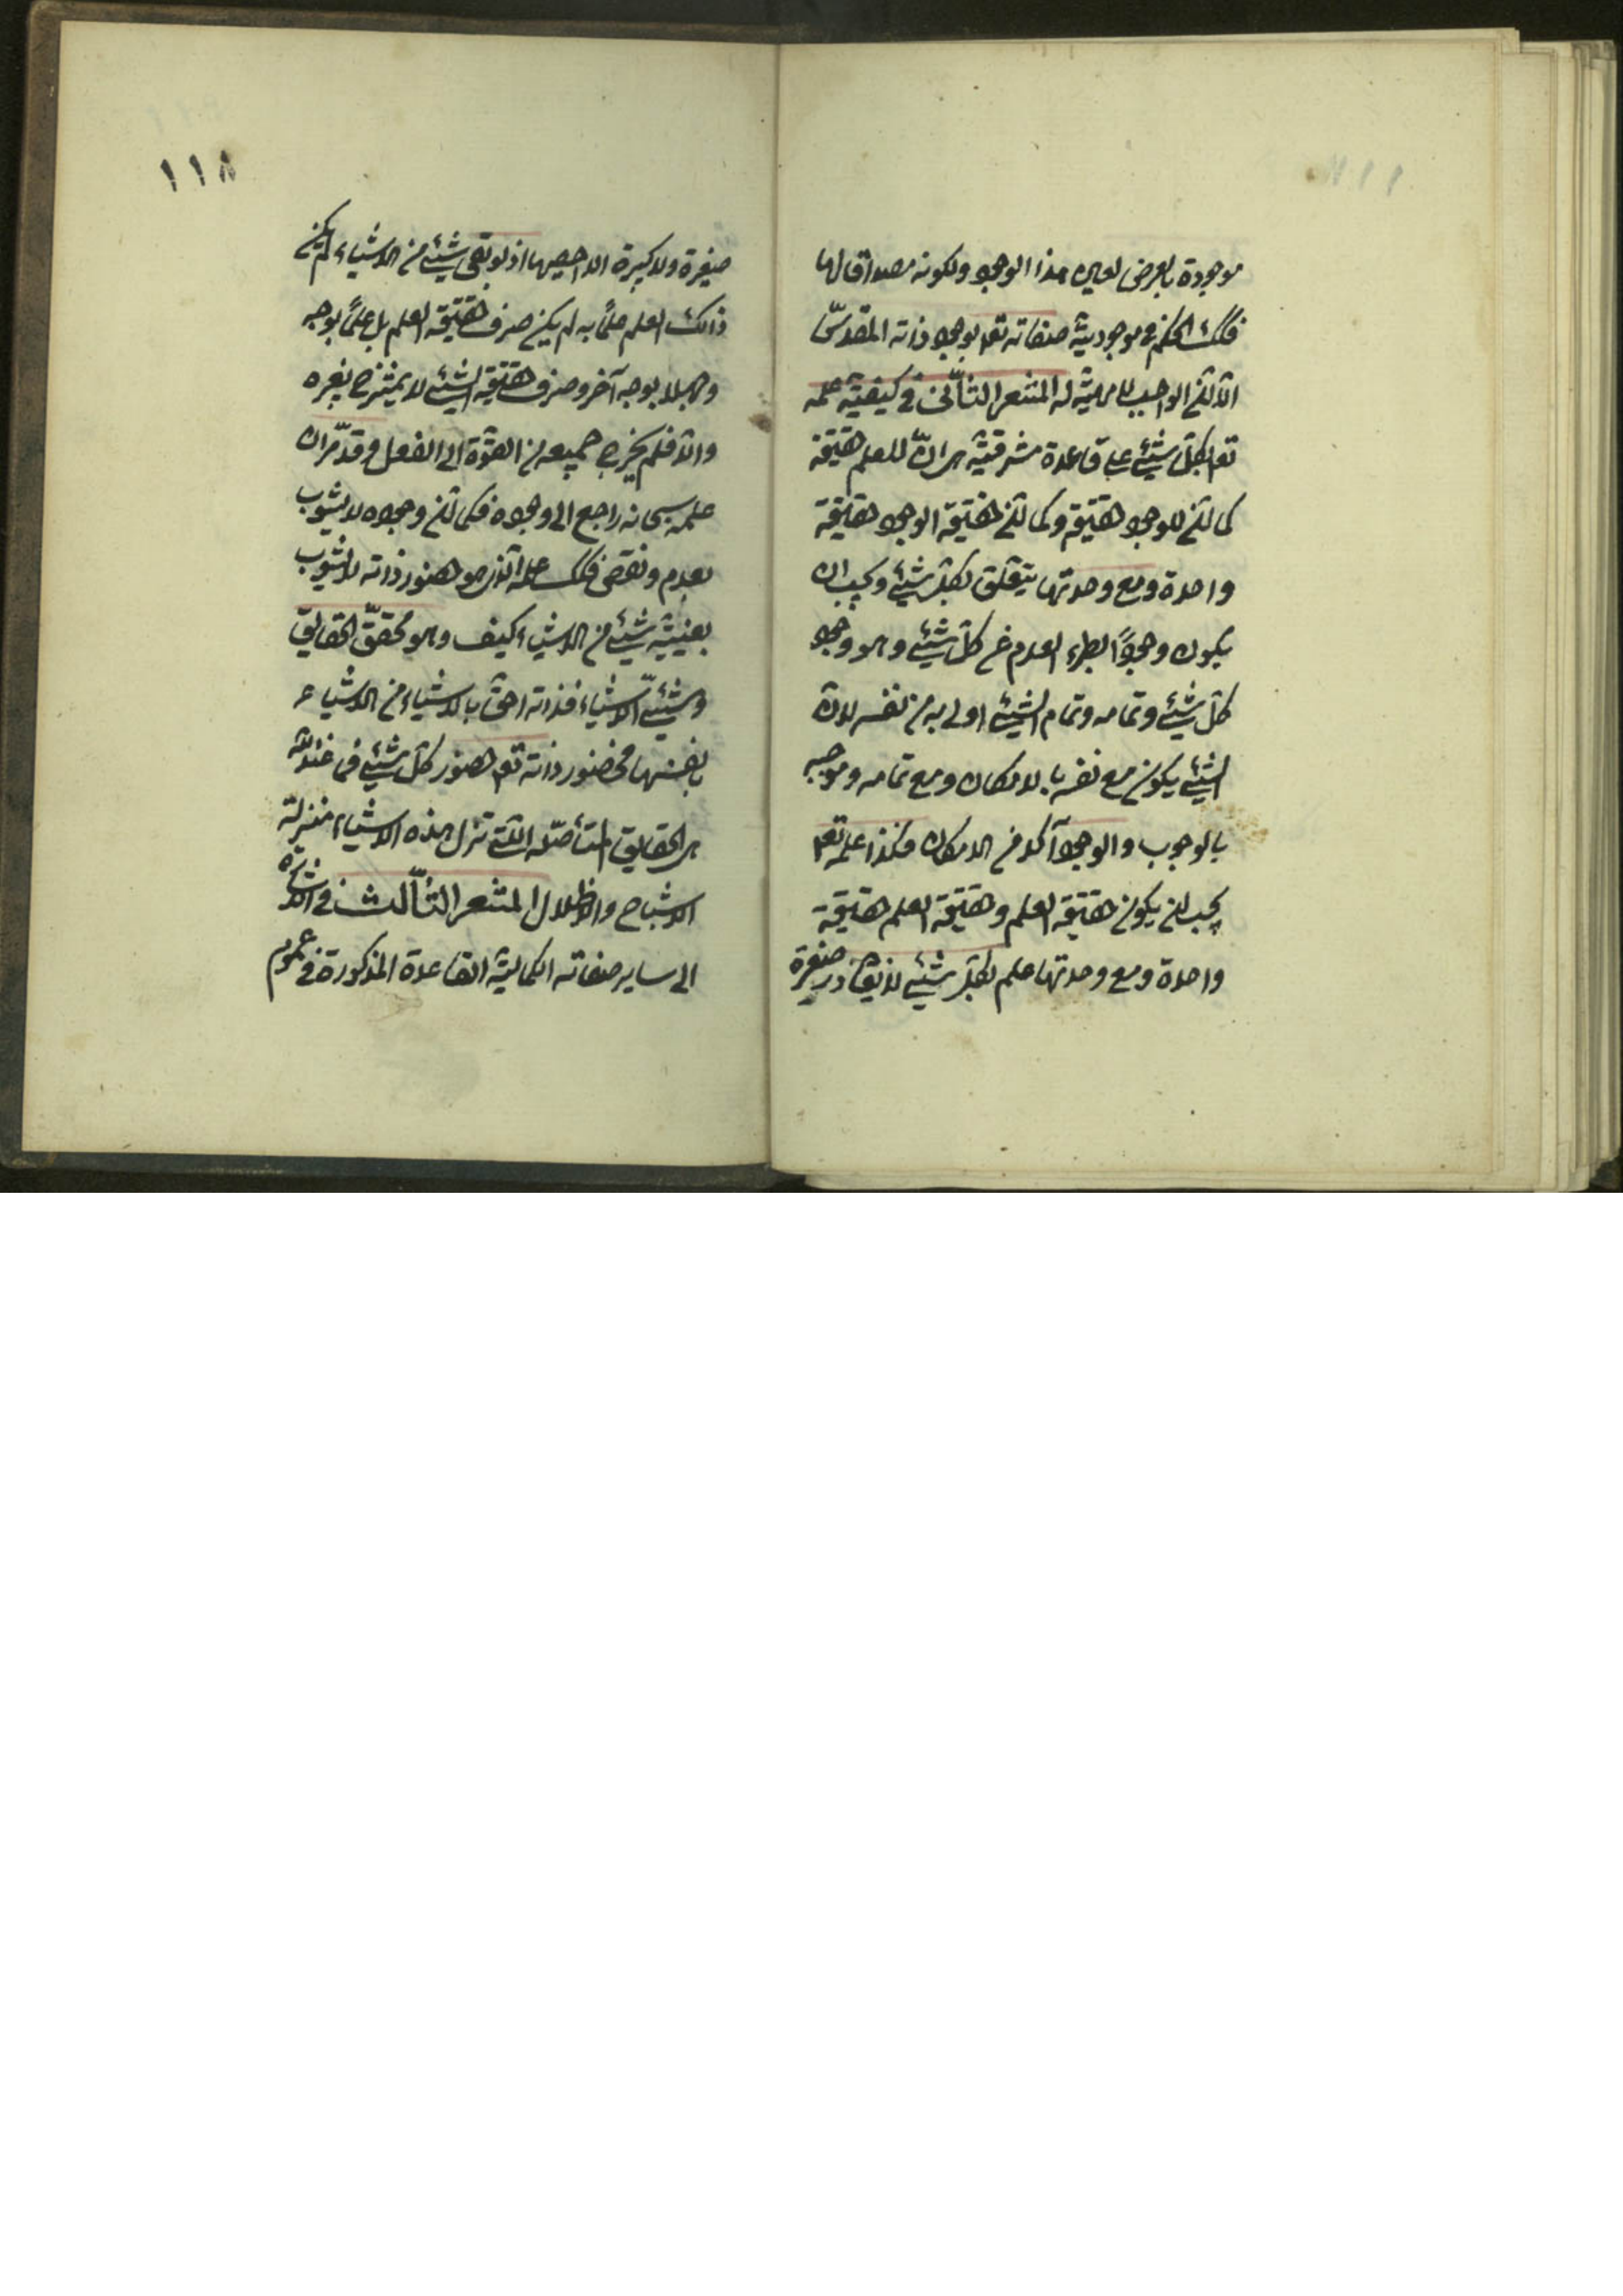 موجودة بالعرض لعين هذا الوجود ولكونه مصداقا لها
فكك الحكم في موجودية صفاته تع‍ بوجود ذاته المقدسّ
الا انّ الواجب لا مهية له المشعر الثّانى في كيفيّة علمه
تع‍ بكلّ شيئ على قاعدة مشرقيّة هى انّ للعلم حقيقة
كما انّ للوجود حقيقة وكما انّ حقيقة الوجود حقيقة
واحدة ومع وحدتها يتعلّق بكلّ شيئ ويجب ان
يكون وجودًا يطرد العدم عن كلّ شيئ وهو وجود
كلّ شيئ وتمامه وتمام الشيئ اولى به من نفسه لانّ
الشيئ يكون مع نفسه بالامكان ومع تمامه وموجبه
بالوجوب والوجوب آكد من الامكان فكذا علمه تع‍
يجب ان يكون حقيقة العلم وحقيقة العلم حقيقة
واحدة ومع وحدتها علم بكلّ شيئ لا يغادر صغيرة
١١٨
صغيرة ولا كبيرة الا احصيها اذ لو بقى شيئ من الاشياء لم يكن
ذالك العلم علمًا به لم يكن صرف حقيقة العلم بل علمًا بوجه
وجهلا بوجه آخر وصرف حقيقة الشيئ لا يمتزج بغيره
والّا فلم يخرج جميعه من القوّة الى الفعل وقد مّر ان
علمه سبحانه راجع الى وجوده فكما انّ وجوده لا يشوب
بعدم ونقص فكك علمه الّذى هو حضور ذاته لا يشوب
بغيبة شيئ من الاشياء كيف وهو محقّق الحقايق
ومشيّئ الاشياء فذاته احقّ بالاشياء من الاشياء
بانفسها فحضور ذاته تع‍ حضور كلّ شيئ فما عند الله
هى الحقايق المتأصّلة الّتى تنزل هذه الاشياء منزلة
الاشباح والاظلال المشعر الثّالث في الاشارة
الى ساير صفاته الكماليّة القاعدة المذكورة في عموم